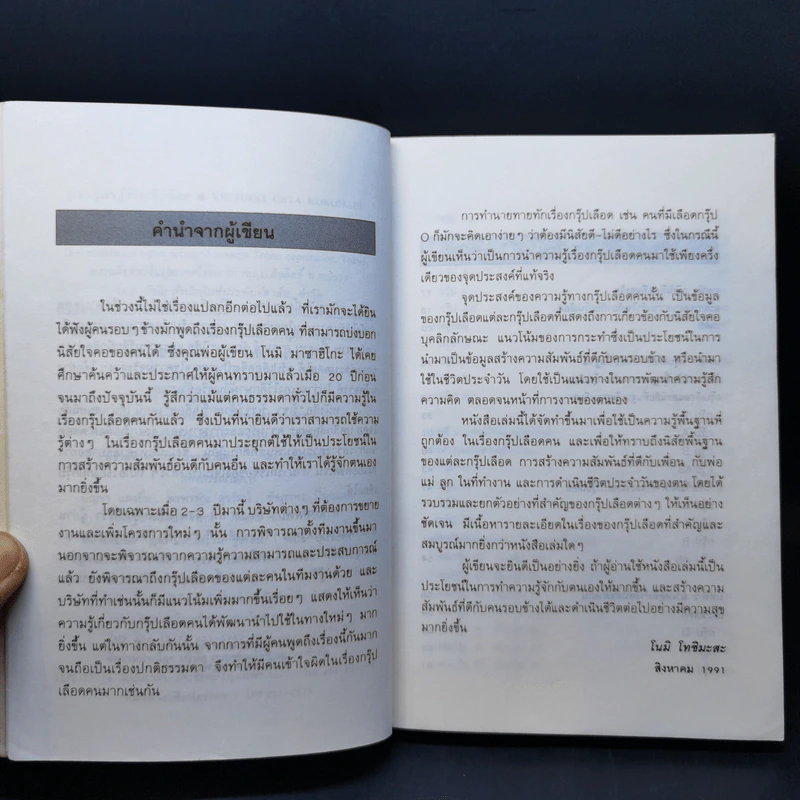 คำนำจากผู้เขียน
ในช่วงนี้ไม่ใช่เรื่องแปลกอีกต่อไปแล้ว ที่เรามักจะได้ยิน
ได้ฟังผู้คนรอบๆข้างมักพูดถึงเรื่องกรุ๊ปเลือดคน ที่สามารถบ่งบอก
นิสัยใจคอของคนได้ ซึ่งคุณพ่อผู้เขียน โนมิ มาซาฮิโกะ ได้เคย
ศึกษาค้นคว้าและประกาศให้ผู้คนทราบมาแล้วเมื่อ 20 ปีก่อน
จนมาถึงปัจจุบันนี้ รู้สึกว่าแม้แต่คนธรรมดาทั่วไปก็มีความรู้ใน
เรื่องกรุ๊ปเลือดคนกันแล้ว ซึ่งเป็นที่น่ายินดีว่าเราสามารถใช้ความ
รู้ต่างๆ ในเรื่องกรุ๊ปเลือดคนมาประยุกต์ใช้ให้เป็นประโยชน์ใน
การสร้างความสัมพันธ์อันดีกับคนอื่น และทำให้เราได้รู้จักตนเอง
มากยิ่งขึ้น
โดยเฉพาะเมื่อ 2-3 ปีมานี้ บริษัทต่างๆ ที่ต้องการขยาย
งานและเพิ่มโครงการใหม่ๆ นั้น การพิจารณาตั้งทีมงานขึ้นมา
นอกจากจะพิจารณาจากความรู้ความสามารถและประสบการณ์
แล้ว ยังพิจารณาถึงกรุ๊ปเลือดของแต่ละคนในทีมงานด้วย และ
บริษัทที่ทำเช่นนั้นก็มีแนวโน้มเพิ่มมากขึ้นเรื่อยๆ แสดงให้เห็นว่า
ความรู้เกี่ยวกับกรุ๊ปเลือดคนได้พัฒนานำไปใช้ในทางใหม่ๆ มาก
ยิ่งขึ้น แต่ในทางกลับกันนั้น จากการที่มีผู้คนพูดถึงเรื่องนี้กันมาก
จนถือเป็นเรื่องปกติธรรมดา จึงทำให้มีคนเข้าใจผิดในเรื่องกรุ๊ป
เลือดคนมากเช่นกัน
การทำนายทายทักเรื่องกรุ๊ปเลือด เช่น คนที่มีเลือดกรุ๊ป
O ก็มักจะคิดเอาง่ายๆ ว่าต้องมีนิสัยดี-ไม่ดีอย่างไร ซึ่งในกรณีนี้
ผู้เขียนเห็นว่าเป็นการนำความรู้เรื่องกรุ๊ปเลือดคนมาใช้เพียงครึ่ง
เดียวของจุดประสงค์ที่แท้จริง
จุดประสงค์ของความรู้ทางกรุ๊ปเลือดคนนั้น เป็นข้อมูล
ของกรุ๊ปเลือดแต่ละกรุ๊ปที่แสดงถึงการเกี่ยวข้องกับนิสัยใจคอ
บุคลิกลักษณะ แนวโน้มของการกระทำซึ่งเป็นประโยชน์ในการ
นำมาเป็นข้อมูลสร้างความสัมพันธ์ที่ดีกับคนรอบข้าง หรือนำมา
ใช้ในชีวิตประจำวัน โดยใช้เป็นแนวทางในการพัฒนาความรู้สึก
ความคิด ตลอดจนหน้าที่การงานของตนเอง
หนังสือเล่มนี้ได้จัดทำขึ้นมาเพื่อใช้เป็นความรู้พื้นฐานที่
ถูกต้อง ในเรื่องกรุ๊ปเลือดคน และเพื่อให้ทราบถึงนิสัยพื้นฐาน
ของแต่ละกรุ๊ปเลือด การสร้างความสัมพันธ์ที่ดีกับเพื่อน กับพ่อ
แม่ ลูก ในที่ทำงาน และการดำเนินชีวิตประจำวันของตน โดยได้
รวบรวมและยกตัวอย่างที่สำคัญของกรุ๊ปเลือดต่างๆ ให้เห็นอย่าง
ชัดเจน มีเนื้อหารายละเอียดในเรื่องของกรุ๊ปเลือดที่สำคัญและ
สมบูรณ์มากยิ่งกว่าหนังสือเล่มใดๆ
ผู้เขียนจะยินดีเป็นอย่างยิ่ง ถ้าผู้อ่านใช้หนังสือเล่มนี้เป็น
ประโยชน์ในการทำความรู้จักกับตนเองให้มากขึ้น และสร้างความ
สัมพันธ์ที่ดีกับคนรอบข้างได้และดำเนินชีวิตต่อไปอย่างมีความสุข
มากยิ่งขึ้น
โนมิ โทชิมะสะ
สิงหาคม 1991